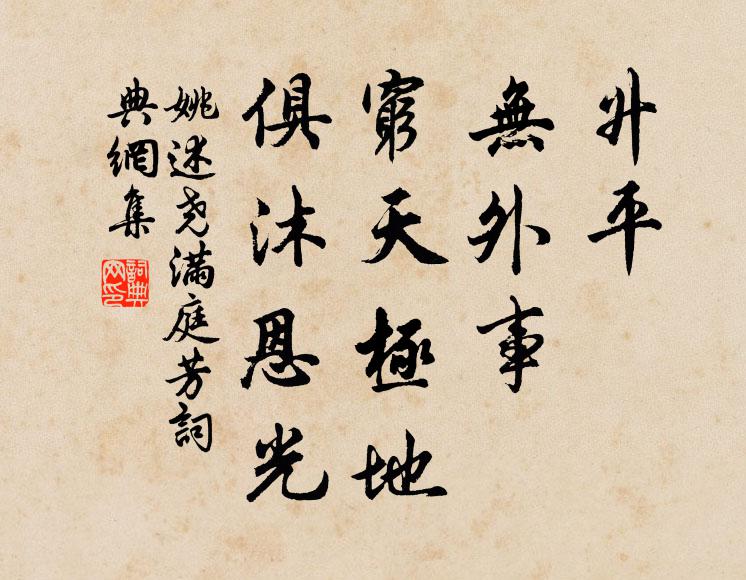 升平
無外事
窮天極地
俱沐恩光
姚述尧滿庭芳詞
典網集
詞典网印